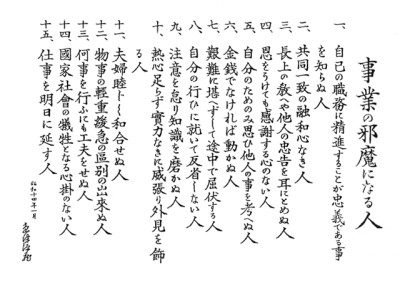 事業の邪魔になる人
一、自己の職務に精進することが忠義である事
を知らぬ人
二、共同一致の融和心なき人
三、長上の教や他人の忠告を耳にとめぬ人
四、恩をうけても感謝する心のない人
五、自分のためのみ思ひ他人の事を考へぬ人
六、金銭でなければ動かぬ人
七、艱難に堪へずして途中で屈伏する人
八、自分の行ひに就いて反省しない人
九、注意を怠り知識を磨かぬ人
十、熱心足らず實力なきに威張り外見を飾
る人
十一、夫婦睦じく和合せぬ人
十二、物事の軽重緩急の區別の出來ぬ人
十三、何事を行ふにも工夫をせぬ人
十四、國家社會の犠牲となる心掛のない人
十五、仕事を明日に延す人
昭和十四年一月